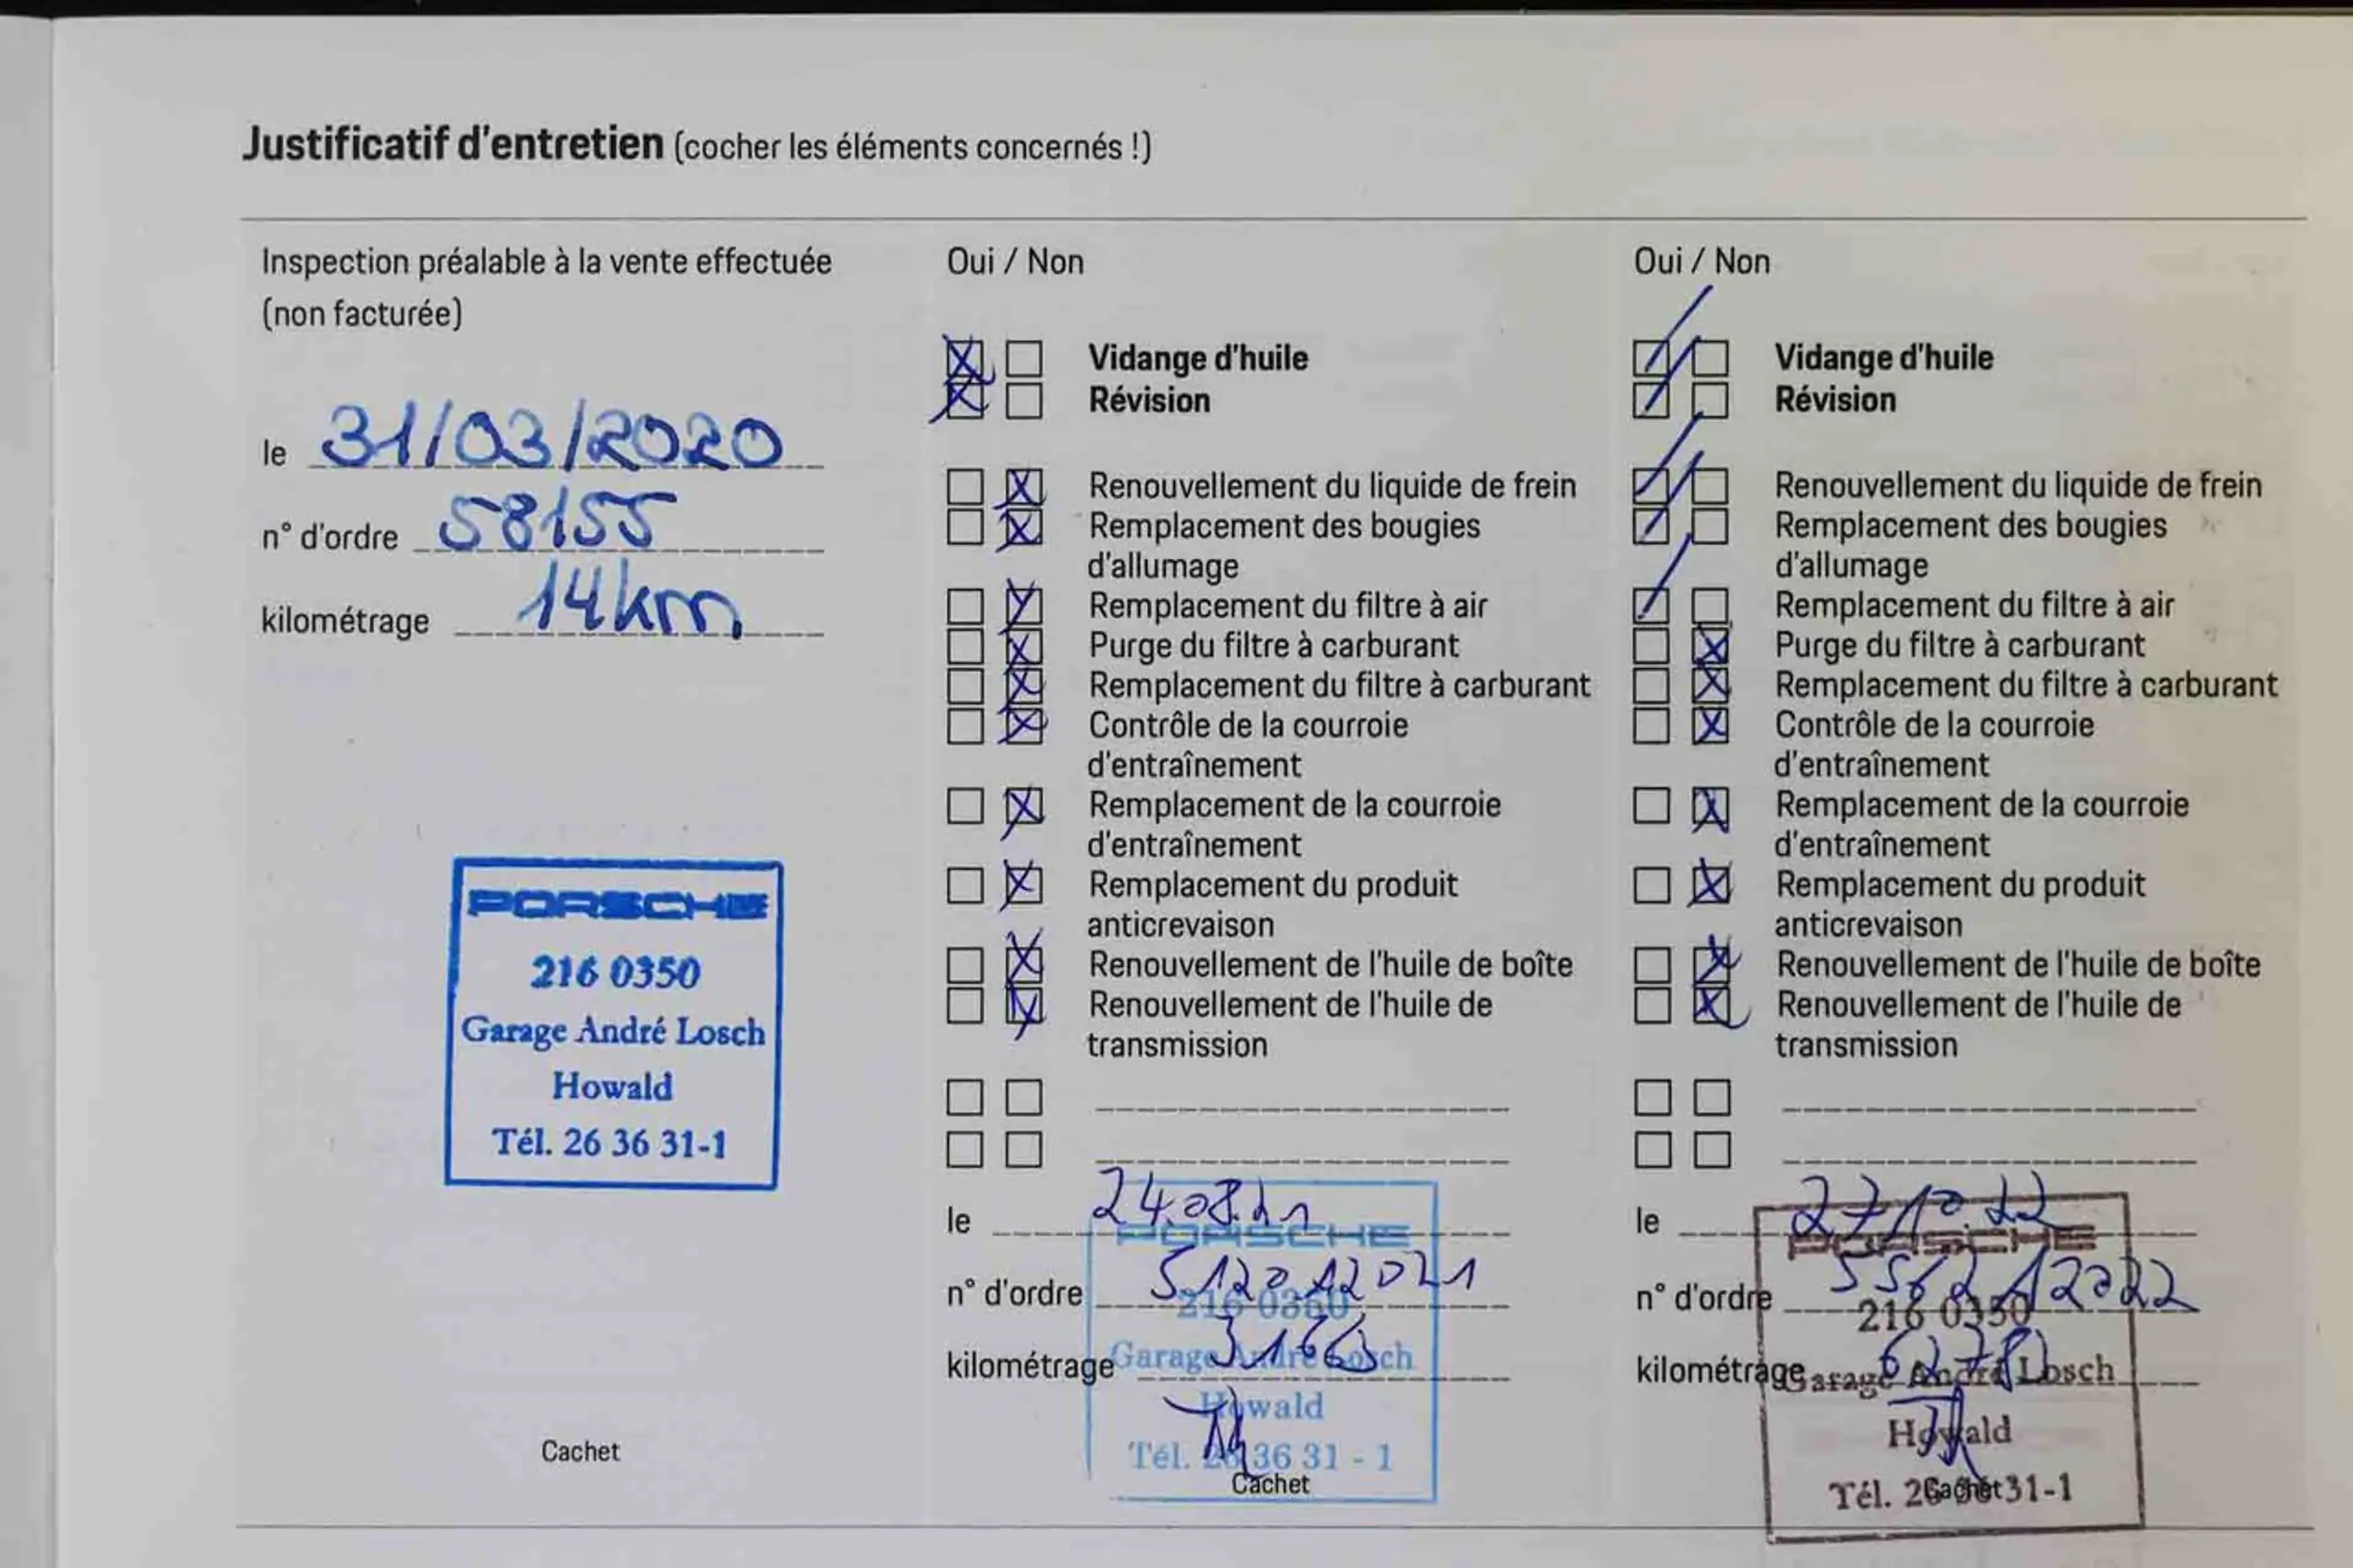 Justificatif d'entretien (cocher les éléments concernés !)
Inspection préalable à la vente effectuée
(non facturée)
le 31/03/2020
n° d'ordre 58155
kilométrage 14km
PORSCHE
216 0350
Garage André Losch
Howald
Tél. 26 36 31-1
Cachet
Oui / Non
Vidange d'huile
Révision
Renouvellement du liquide de frein
Remplacement des bougies
d'allumage
Remplacement du filtre à air
Purge du filtre à carburant
Remplacement du filtre à carburant
Contrôle de la courroie
d'entraînement
Remplacement de la courroie
d'entraînement
Remplacement du produit
anticrevaison
Renouvellement de l'huile de boîte
Renouvellement de l'huile de
transmission
le 24.08.21
PORSCHE
n° d'ordre
216 0350
kilométrage
Garage André Losch
Howald
Tél. 26 36 31 - 1
Cachet
Oui / Non
Vidange d'huile
Révision
Renouvellement du liquide de frein
Remplacement des bougies
d'allumage
Remplacement du filtre à air
Purge du filtre à carburant
Remplacement du filtre à carburant
Contrôle de la courroie
d'entraînement
Remplacement de la courroie
d'entraînement
Remplacement du produit
anticrevaison
Renouvellement de l'huile de boîte
Renouvellement de l'huile de
transmission
le 27/10.22
PORSCHE
n° d'ordre
216 0350
kilométrage
Garage André Losch
Howald
Tél. 26 36 31-1
Cachet